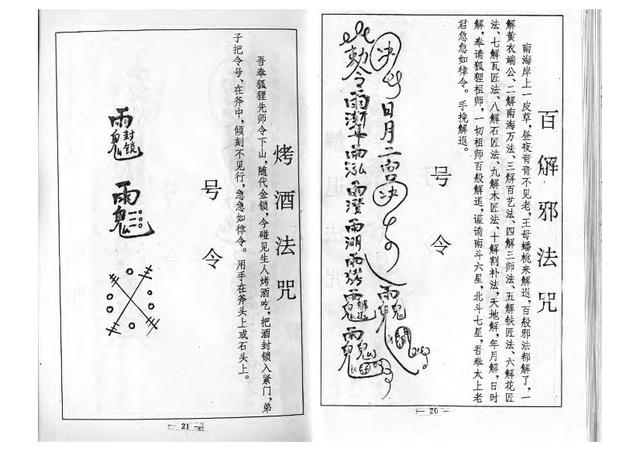 百解邪法咒
南海岸上一皮草，昼夜青青不见老，王母蟠桃来解退，百般邪法都解了，一
解黄衣端公、二解南海万法、三解百艺法、四解三师法、五解铁匠法、六解花匠
法、七解瓦匠法、八解石匠法、九解木匠法、十解割补法，天地解，年月解，日时
解，奉请狐狸祖师，一切祖师百般解退，谨请南斗六星，北斗七星，吾奉太上老
君急急如律令。手挽解退。
号令
敕令
日月二
— 20 —
烤酒法咒
吾奉狐狸先师令下山，随代金锁，今碰见生人烤酒吃，把酒封锁入紧门，弟
子把令号、在斧中，倾刻不见行，急急如律令。用手在斧头上或石头上。
号令
封锁
— 21 —